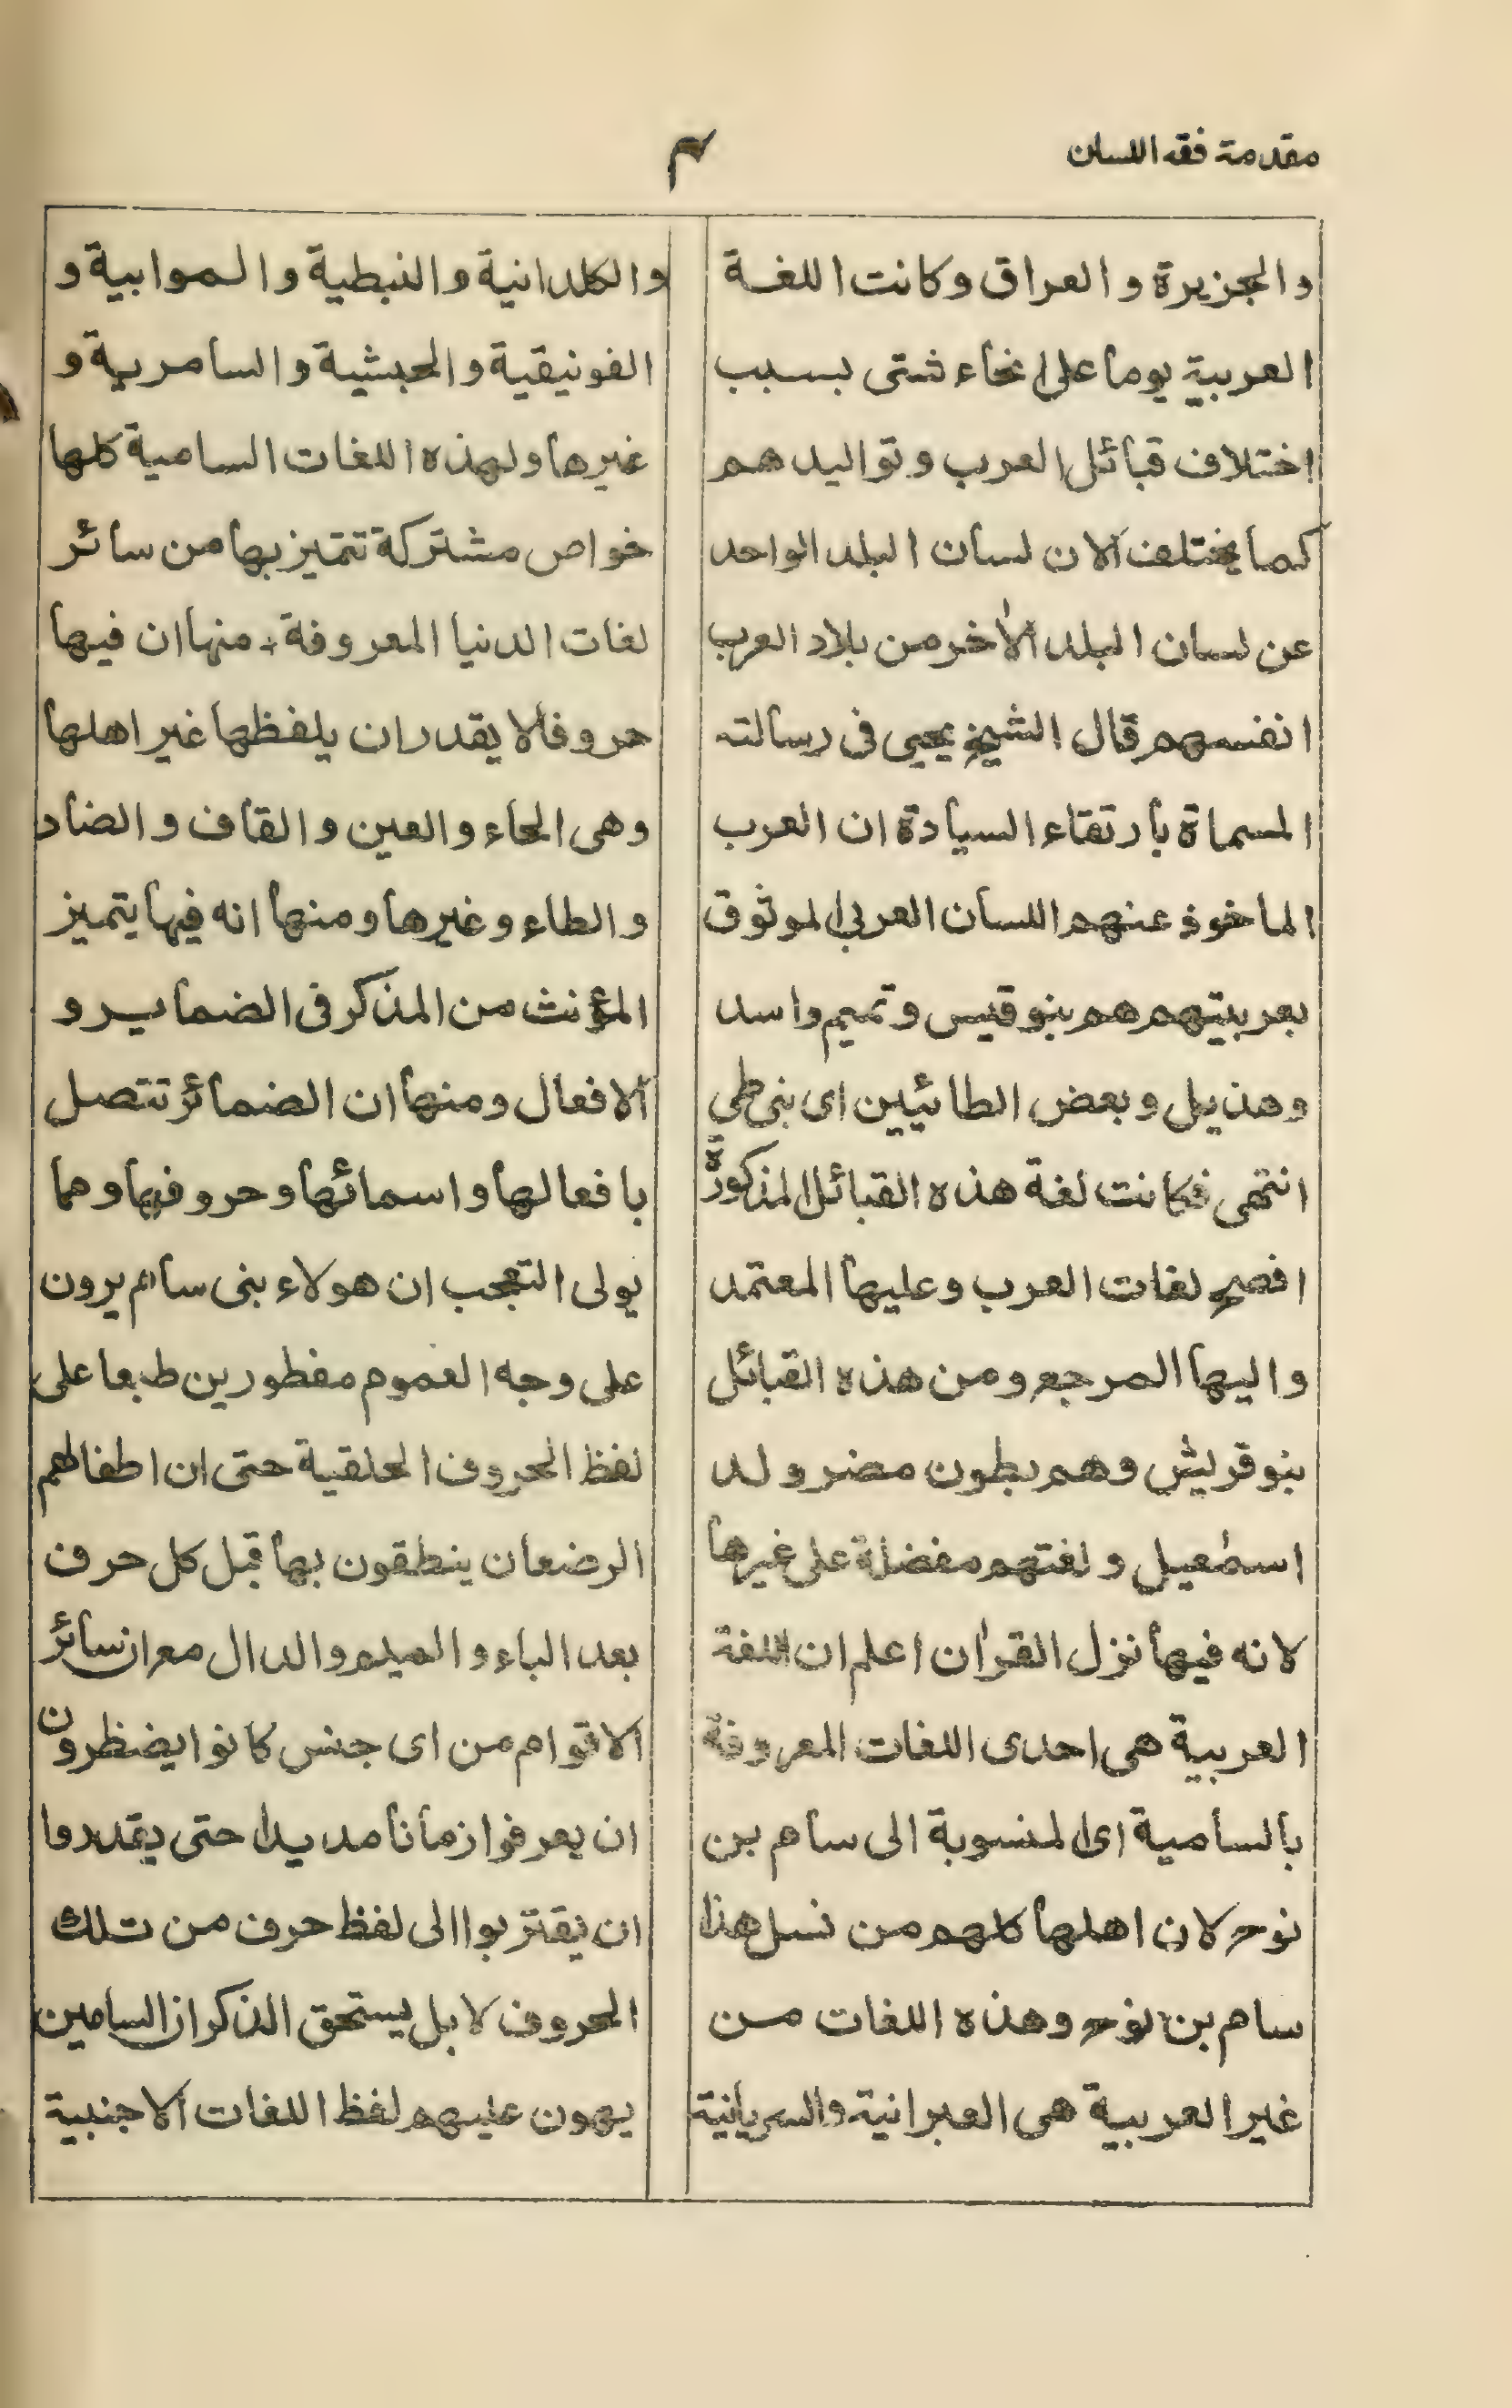 مقدمة فقه اللسان
٣
والجزيرة والعراق وكانت اللغة
العربية يوما على انحاء شتى بسبب
اختلاف قبائل العرب وتواليدهم
كما يختلف الان لسان البلد الواحد
عن لسان البلد الأخر من بلاد العرب
انفسهم قال الشيخ يحيى فى رسالته
المسماة بارتقاء السيادة ان العرب
الماخوذ عنهم اللسان العربى الموثوق
بعربيتهم هم بنو قيس وتميم واسد
وهذيل وبعض الطائيين اى بنى طى
انتهى فكانت لغة هذه القبائل المذكورة
افصح لغات العرب وعليها المعتمد
واليها المرجع ومن هذه القبائل
بنو قريش وهم بطون مضر ولد
اسمٰعيل ولغتهم مفضلة على غيرها
لانه فيها نزل القرآن اعلم ان اللغة
العربية هى احدى اللغات المعروفة
بالسامية اى المنسوبة الى سام بن
نوح لان اهلها كلهم من نسل هذا
سام بن نوح وهذه اللغات من
غير العربية هى العبرانية والسريانية
والكلدانية والنبطية والموابية و
الفونيقية والحبشية والسامرية و
غيرها ولهذه اللغات السامية كلها
خواص مشتركة تتميز بها من سائر
لغات الدنيا المعروفة ۔ منها ان فيها
حروفا لا يقدر ان يلفظها غير اهلها
وهى الحاء والعين والقاف والضاد
والطاء وغيرها ومنها انه فيها يتميز
المؤنث من المذكر فى الضماير و
الافعال ومنها ان الضمائر تتصل
بافعالها واسمائها وحروفها ومما
يولى التعجب ان هولاء بنى سام يرون
على وجه العموم مفطورين طبعا على
لفظ الحروف الحلقية حتى ان اطفالهم
الرضعان ينطقون بها قبل كل حرف
بعد الباء والميم والدال مع ان سائر
الاقوام من اى جنس كانوا يضظرون
ان يعرفوا زمانا مديدا حتى يقدروا
ان يقتربوا الى لفظ حرف من تلك
الحروف لا بل يستحق الذكر ان السامين
يهون عليهم لفظ اللغات الاجنبية